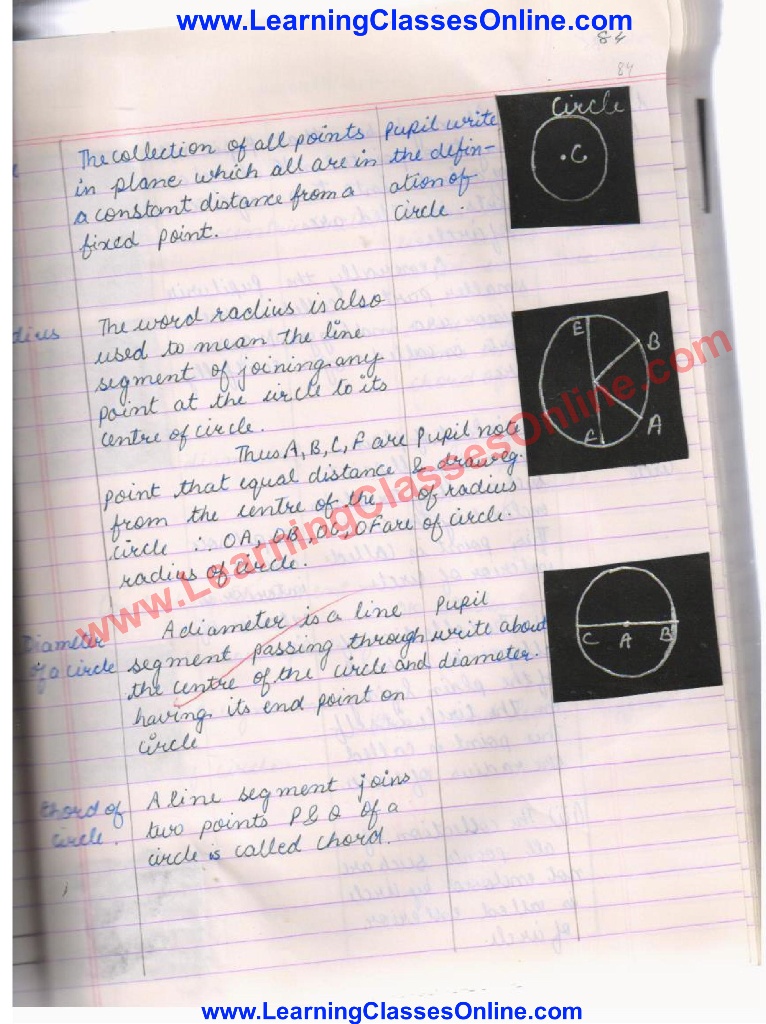 www.LearningClassesOnline.com
84
84
The collection of all points
in plane which all are in
a constant distance from a
fixed point.
Pupil write
the defin-
ation of
circle.
circle
C
dius
The word radius is also
used to mean the line
segment of joining any
point at the circle to its
centre of circle.
Thus A, B, C, F are
point that equal distance
from the centre of the
circle ∴ OA, OB, OC, OF are
radius of circle.
Pupil note
& draweg.
of radius
of circle.
E
B
A
F
www.LearningClassesOnline.com
Diameter
of a circle
A diameter is a line
segment passing through
the centre of the circle and
having its end point on
circle
Pupil
write about
diameter.
C A B
Chord of
circle.
A line segment joins
two points P & Q of a
circle is called chord.
www.LearningClassesOnline.com